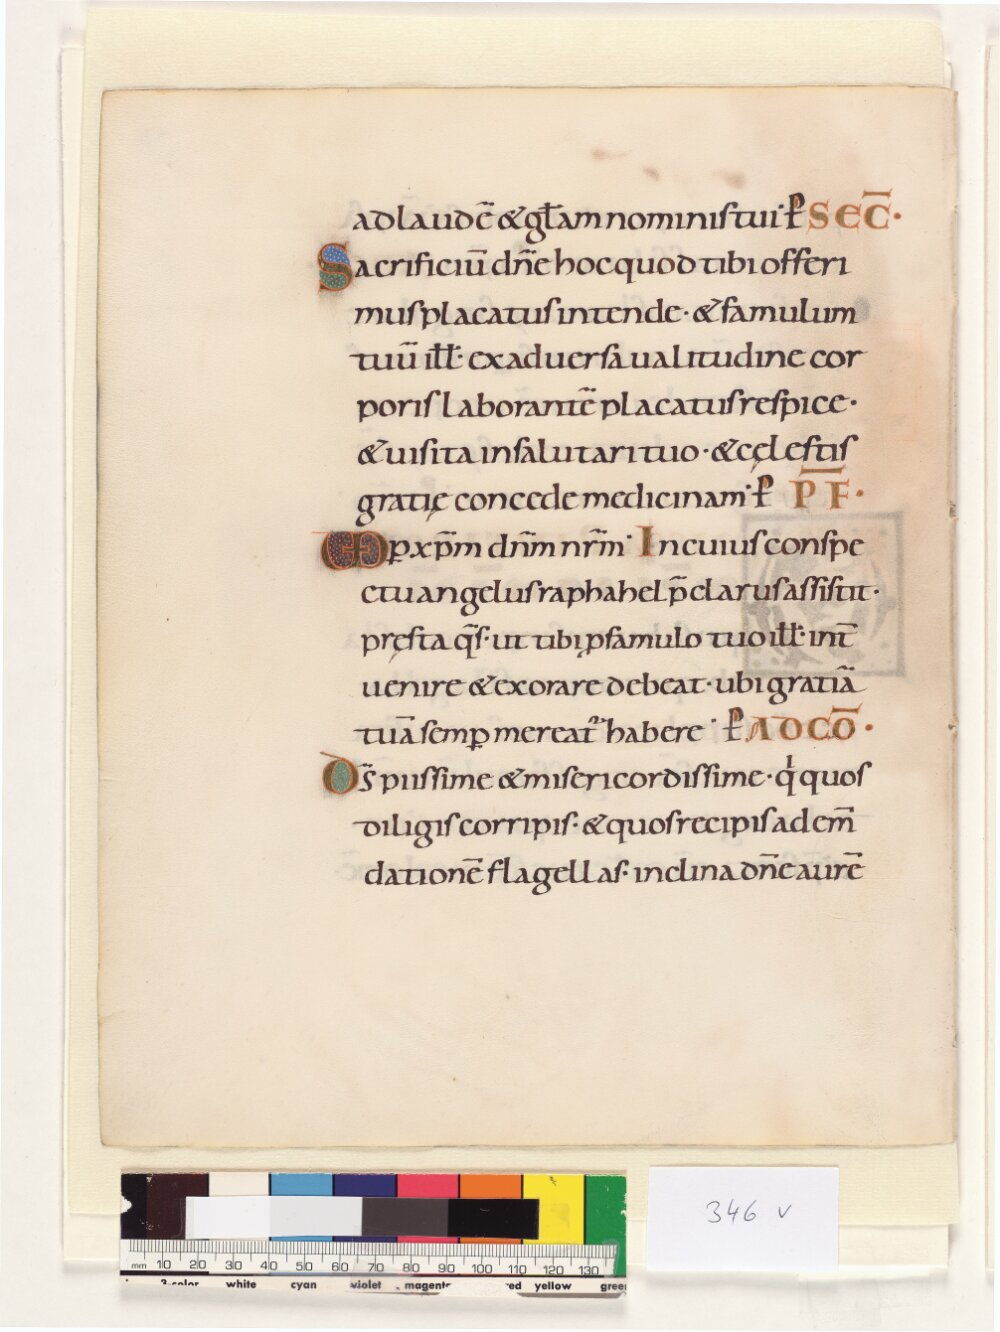 adlaudē &gl̄am nominiſ tui· ꝑ SEC̄·
Sacrificiū dn̄e hoc quod tibi offeri
muſ placatuſ intende· & famulum
tuū ill̄· ex aduerſa ualitudine cor
poriſ laborantē placatuſ reſpice·
& uiſita in ſalutari tuo· & cęleſtiſ
gratię concede medicinam·
P̄ F̄·
p xp̄m dn̄m nr̄m· In cuiuſ conſpe
ctu angeluſ raphahel p̄claruſ aſſiſtit·
pręſta q̄ſ· ut tibi ꝓ famulo tuo ill̄· int̄
uenire & exorare debeat· ubi gratiā
tuā ſemꝑ mereat᷑ habere· AD CŌ·
Ds̄ piiſſime & miſericordiſſime· qͥ quoſ
diligiſ corripiſ· & quoſ recipiſ ad em̄
dationē flagellaſ· inclina dn̄e aurē
346 v
mm 10 20 30 40 50 60 70 80 90 100 110 120 130
3-color white cyan violet magenta red yellow green